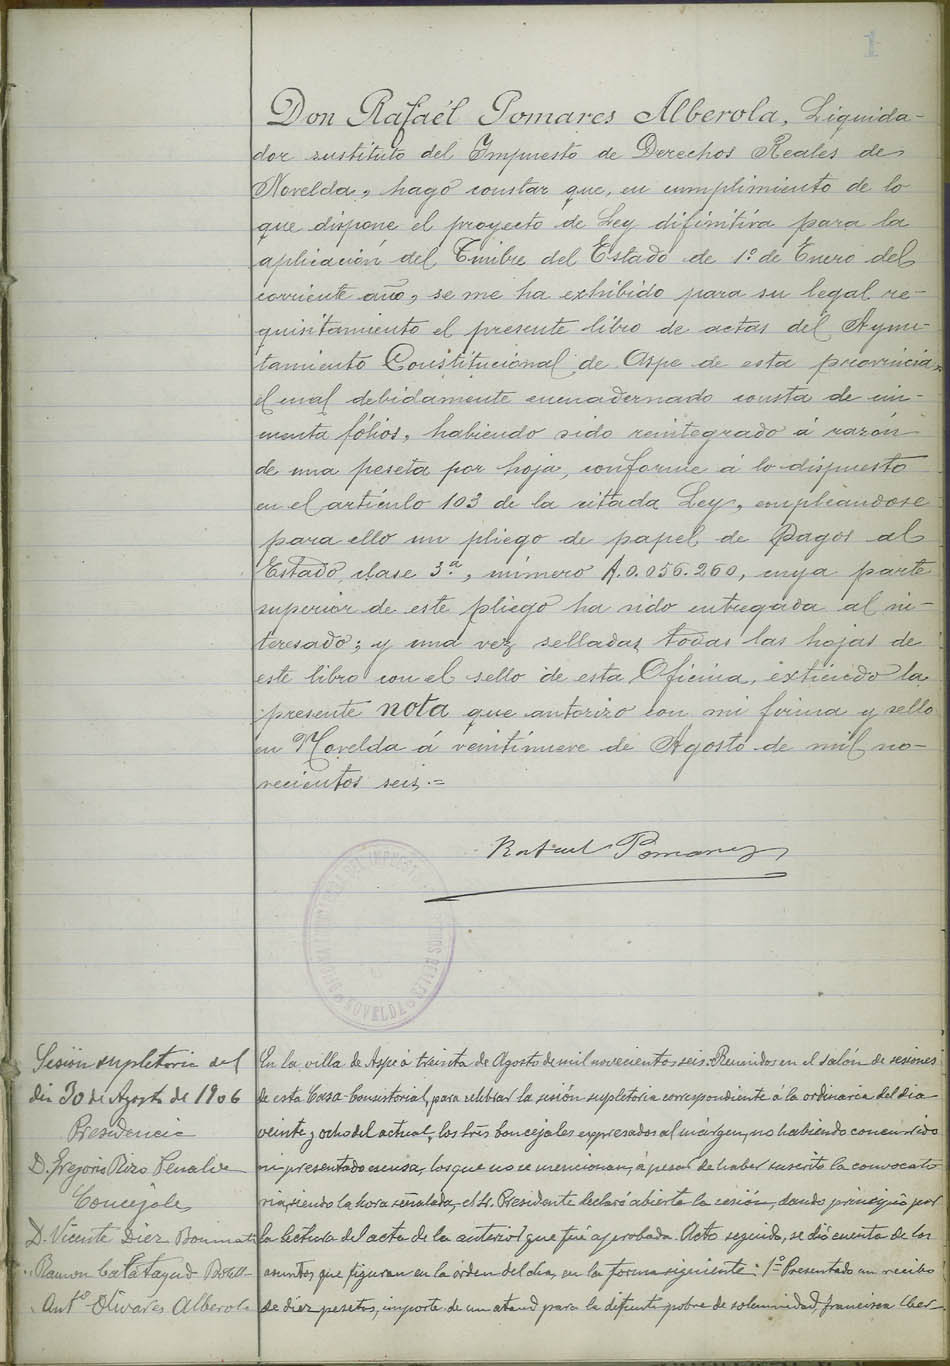 1
Don Rafaél Pomares Alberola, Liquida-
dor sustituto del Impuesto de Derechos Reales de
Novelda, hago constar que, en cumplimiento de lo
que dispone el proyecto de Ley difinitiva para la
aplicación del Timbre del Estado de 1º de Enero del
corriente año, se me ha exhibido para su legal re-
quisitamiento el presente libro de actas del Ayun-
tamiento Constitucional de Aspe de esta provincia,
el cual debidamente encuadernado consta de cin-
cuenta fólios, habiendo sido reintegrado á razón
de una peseta por hoja, conforme á lo dispuesto
en el artículo 103 de la citada Ley, empleandose
para ello un pliego de papel de Pagos al
Estado, clase 3ª, número A.0.056.260, cuya parte
superior de este pliego ha sido entregada al in-
teresado; y una vez selladas todas las hojas de
este libro con el sello de esta Oficina, extiendo la
presente nota que autorizo con mi firma y sello
en Novelda á veintinueve de Agosto de mil no-
vecientos seis.=
Rafael Pomares
NOVELDA
Sesión supletoria del
dia 30 de Agosto de 1906
Presidencia
D. Gregorio Rizo Penalva
Concejales
D. Vicente Diez Bonmati
" Ramon Calatayud Botell
" Antº Olivares Alberola
En la villa de Aspe á treinta de Agosto de mil novecientos seis. Reunidos en el salón de sesiones
de esta Casa-Consistorial, para celebrar la sesión supletoria correspondiente á la ordinaria del dia
veinte y ocho del actual, los tres Concejales expresados al margen, no habiendo concurrido
ni presentado escusa, los que no se mencionan, á pesar de haber suscrito la convocato
ria, siendo la hora señalada, el Sr. Presidente declaró abierta la sesión, dando principio por
la lectura del acta de la anterior que fué aprobada. Acto seguido, se dió cuenta de los
asuntos que figuran en la orden del dia, en la forma siguiente: 1º Presentado un recibo
de diez pesetas, importe de un ataud para la difunta pobre de solemnidad, Francisca